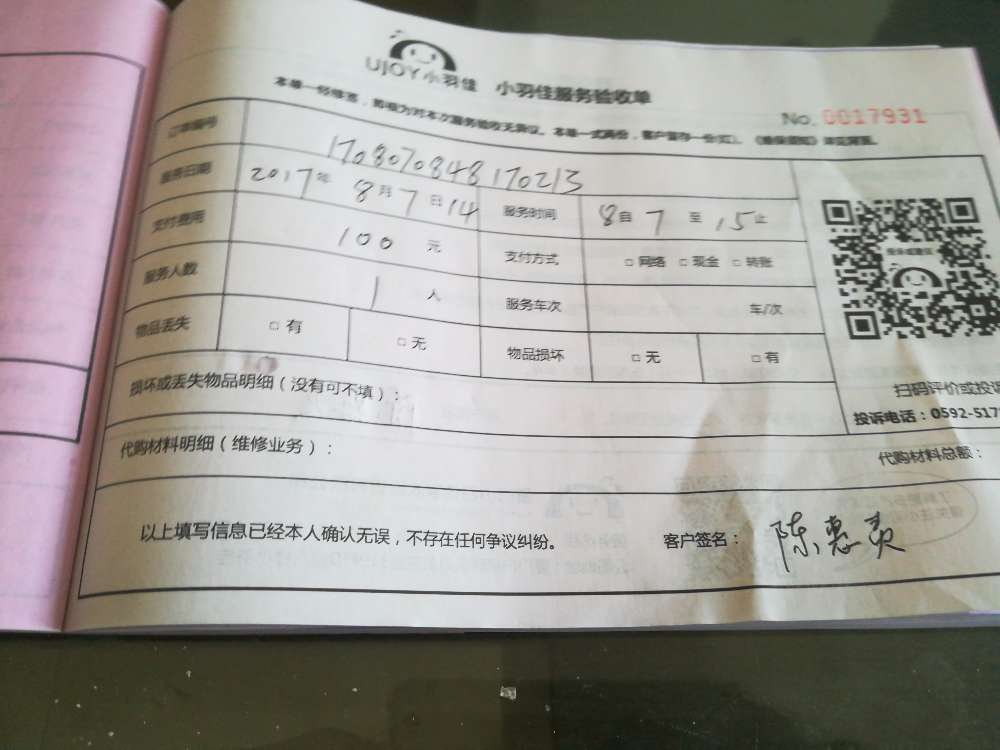 UJOY小羽佳 小羽佳服务验收单
本单一经签署，即视为对本次服务验收无异议。本单一式两份，客户留存一份(红)。《维保须知》详见背面。
No. 0017931
订单编号 1708070848170213
服务日期 2017年8月7日14 服务时间 8自7至15止
支付费用 100元 支付方式 □网络 □现金 □转账
服务人数 1人 服务车次 车/次
物品丢失 □有 □无 物品损坏 □无 □有
损坏或丢失物品明细（没有可不填）：
扫码评价或投诉
投诉电话：0592-517
代购材料明细（维修业务）： 代购材料总额：
以上填写信息已经本人确认无误，不存在任何争议纠纷。 客户签名：陈惠